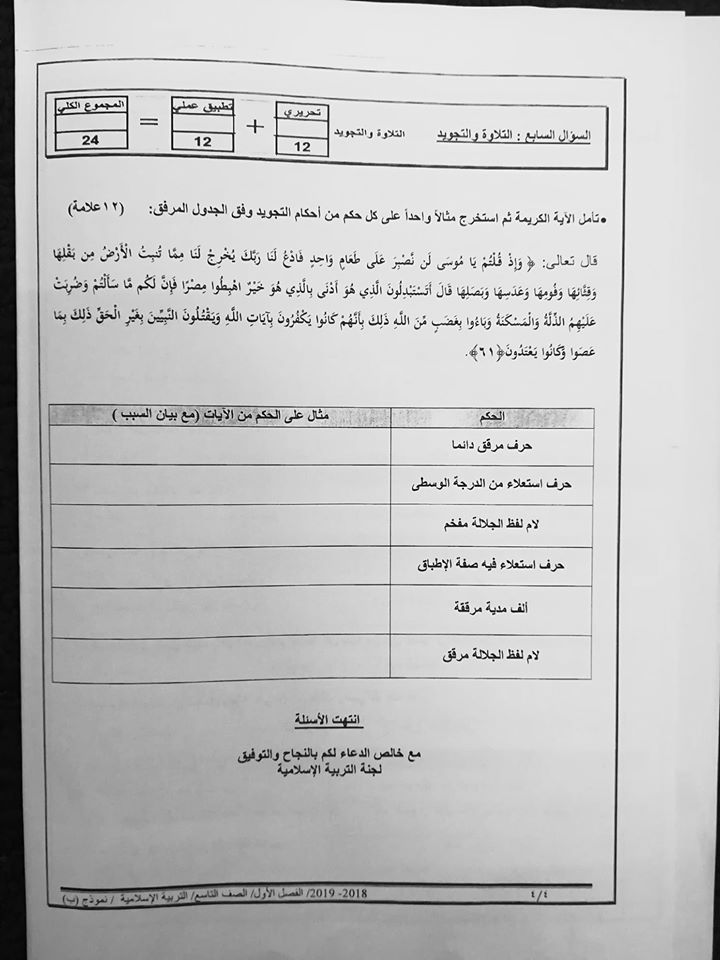 السؤال السابع : التلاوة والتجويد
التلاوة والتجويد
تحريري
12
+
تطبيق عملي
12
=
المجموع الكلي
24
• تأمل الآية الكريمة ثم استخرج مثالاً واحداً على كل حكم من أحكام التجويد وفق الجدول المرفق: (١٢علامة)
قال تعالى: ﴿ وَإِذْ قُلْتُمْ يَا مُوسَى لَن نَّصْبِرَ عَلَى طَعَامٍ وَاحِدٍ فَادْعُ لَنَا رَبَّكَ يُخْرِجْ لَنَا مِمَّا تُنبِتُ الْأَرْضُ مِن بَقْلِهَا
وَقِثَّائِهَا وَفُومِهَا وَعَدَسِهَا وَبَصَلِهَا قَالَ أَتَسْتَبْدِلُونَ الَّذِي هُوَ أَدْنَى بِالَّذِي هُوَ خَيْرٌ اهْبِطُوا مِصْرًا فَإِنَّ لَكُم مَّا سَأَلْتُمْ وَضُرِبَتْ
عَلَيْهِمُ الذِّلَّةُ وَالْمَسْكَنَةُ وَبَاءُوا بِغَضَبٍ مِّنَ اللَّهِ ذَلِكَ بِأَنَّهُمْ كَانُوا يَكْفُرُونَ بِآيَاتِ اللَّهِ وَيَقْتُلُونَ النَّبِيِّينَ بِغَيْرِ الْحَقِّ ذَلِكَ بِمَا
عَصَوا وَّكَانُوا يَعْتَدُونَ﴿٦١﴾.
الحكم
مثال على الحكم من الآيات (مع بيان السبب )
حرف مرقق دائما
حرف استعلاء من الدرجة الوسطى
لام لفظ الجلالة مفخم
حرف استعلاء فيه صفة الإطباق
ألف مدية مرققة
لام لفظ الجلالة مرقق
انتهت الأسئلة
مع خالص الدعاء لكم بالنجاح والتوفيق
لجنة التربية الإسلامية
٤/٤
2018- 2019/ الفصل الأول/ الصف التاسع/ التربية الإسلامية / نموذج (ب)